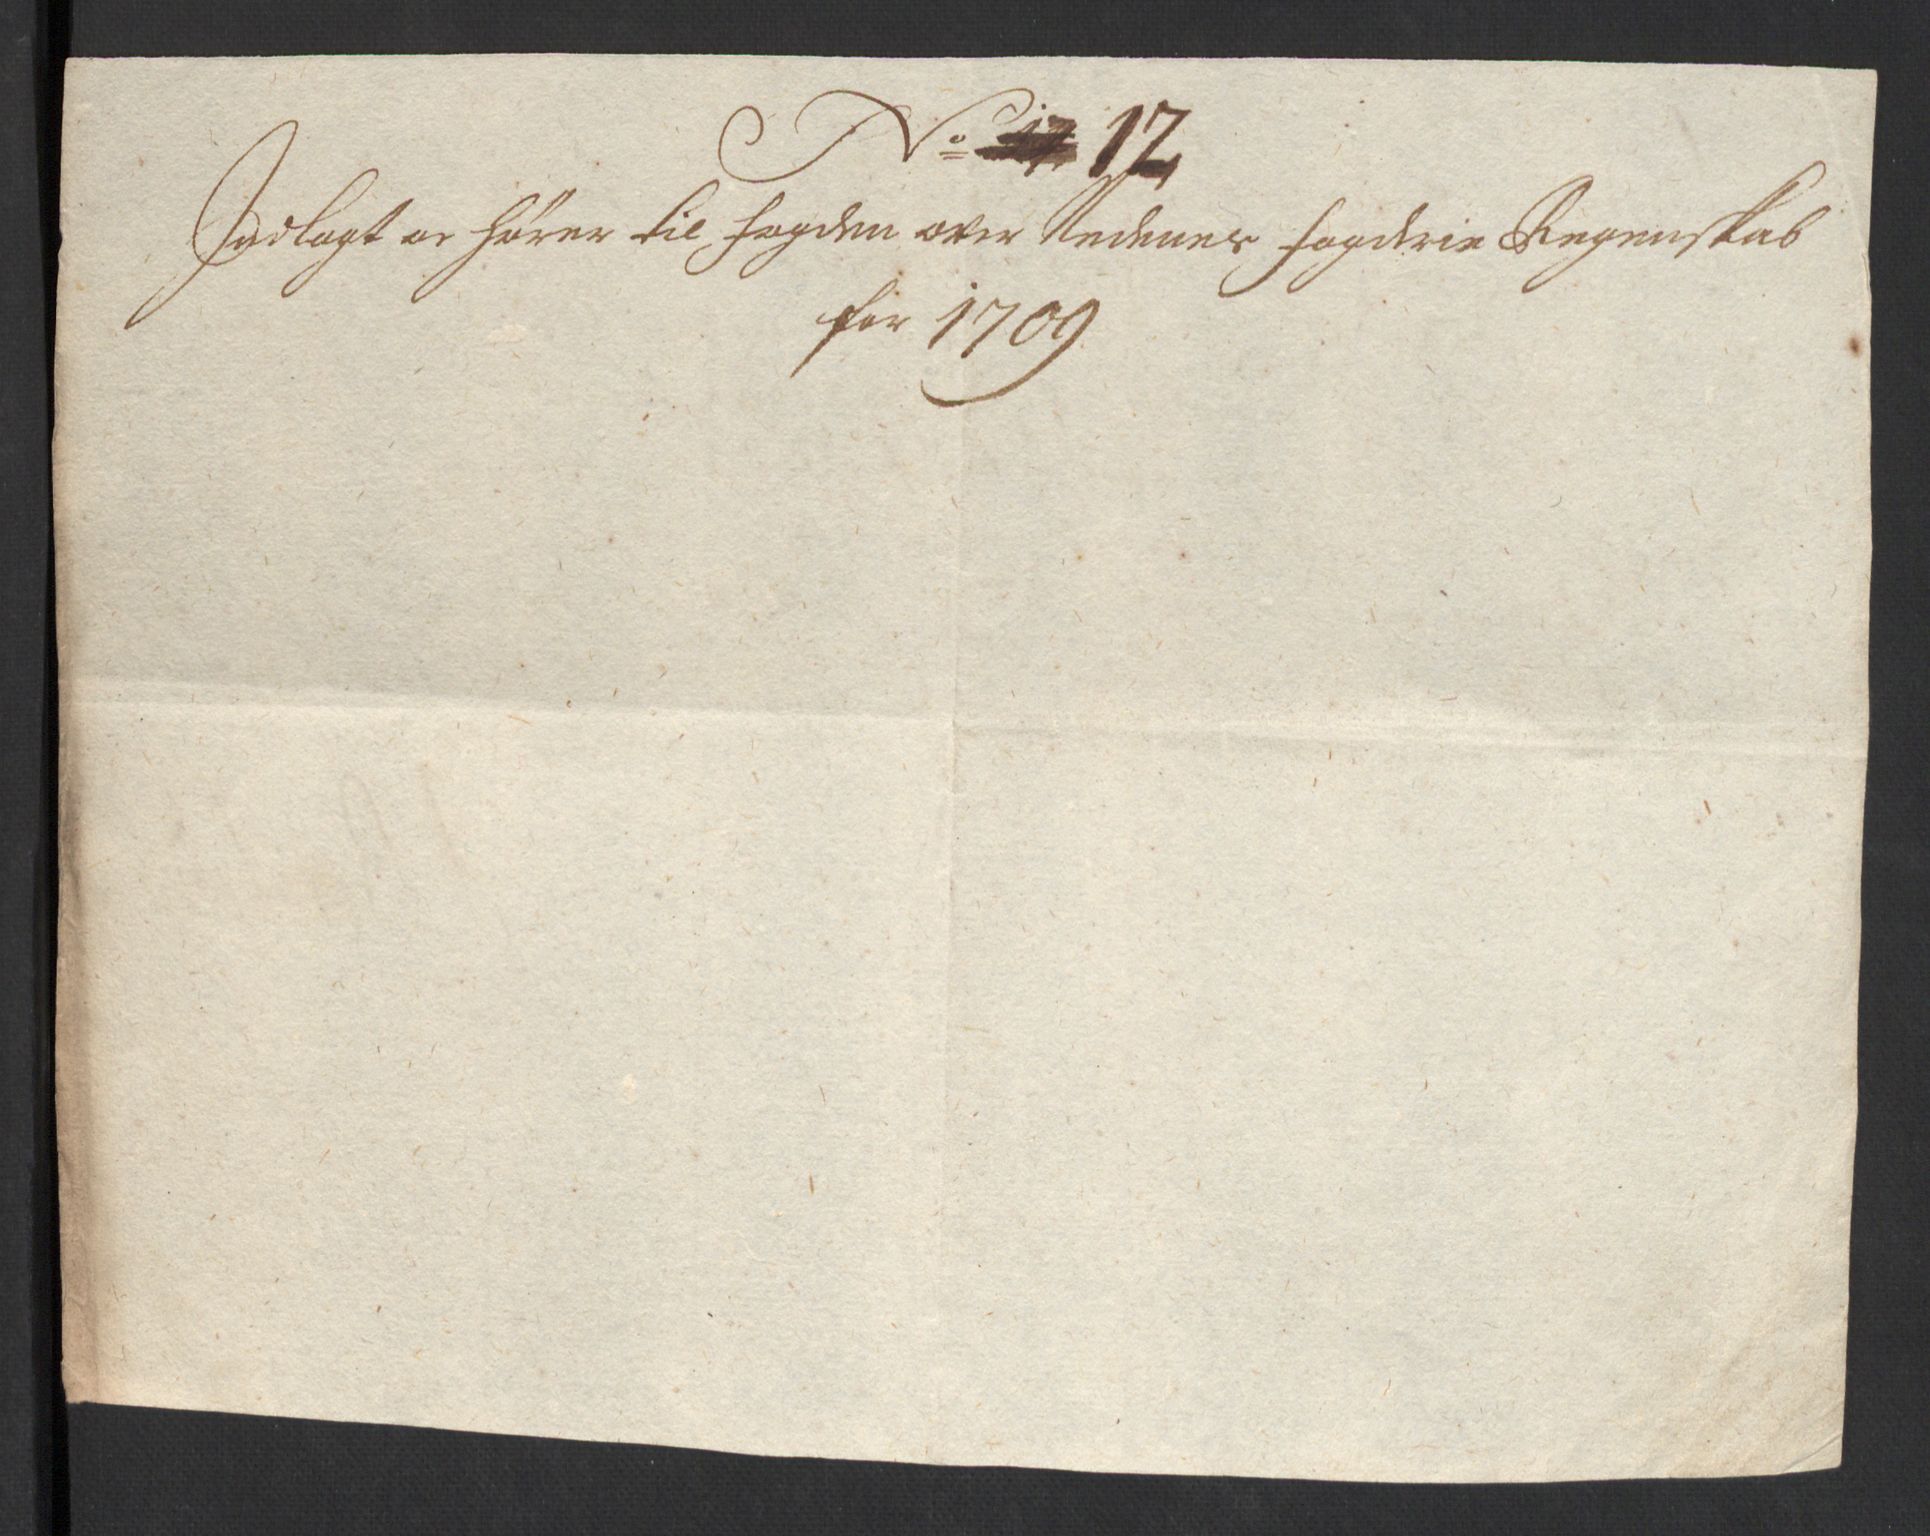 No 12
Indlagt er hörer til fogden over Nedenes fogderie Regenskab
for 1709